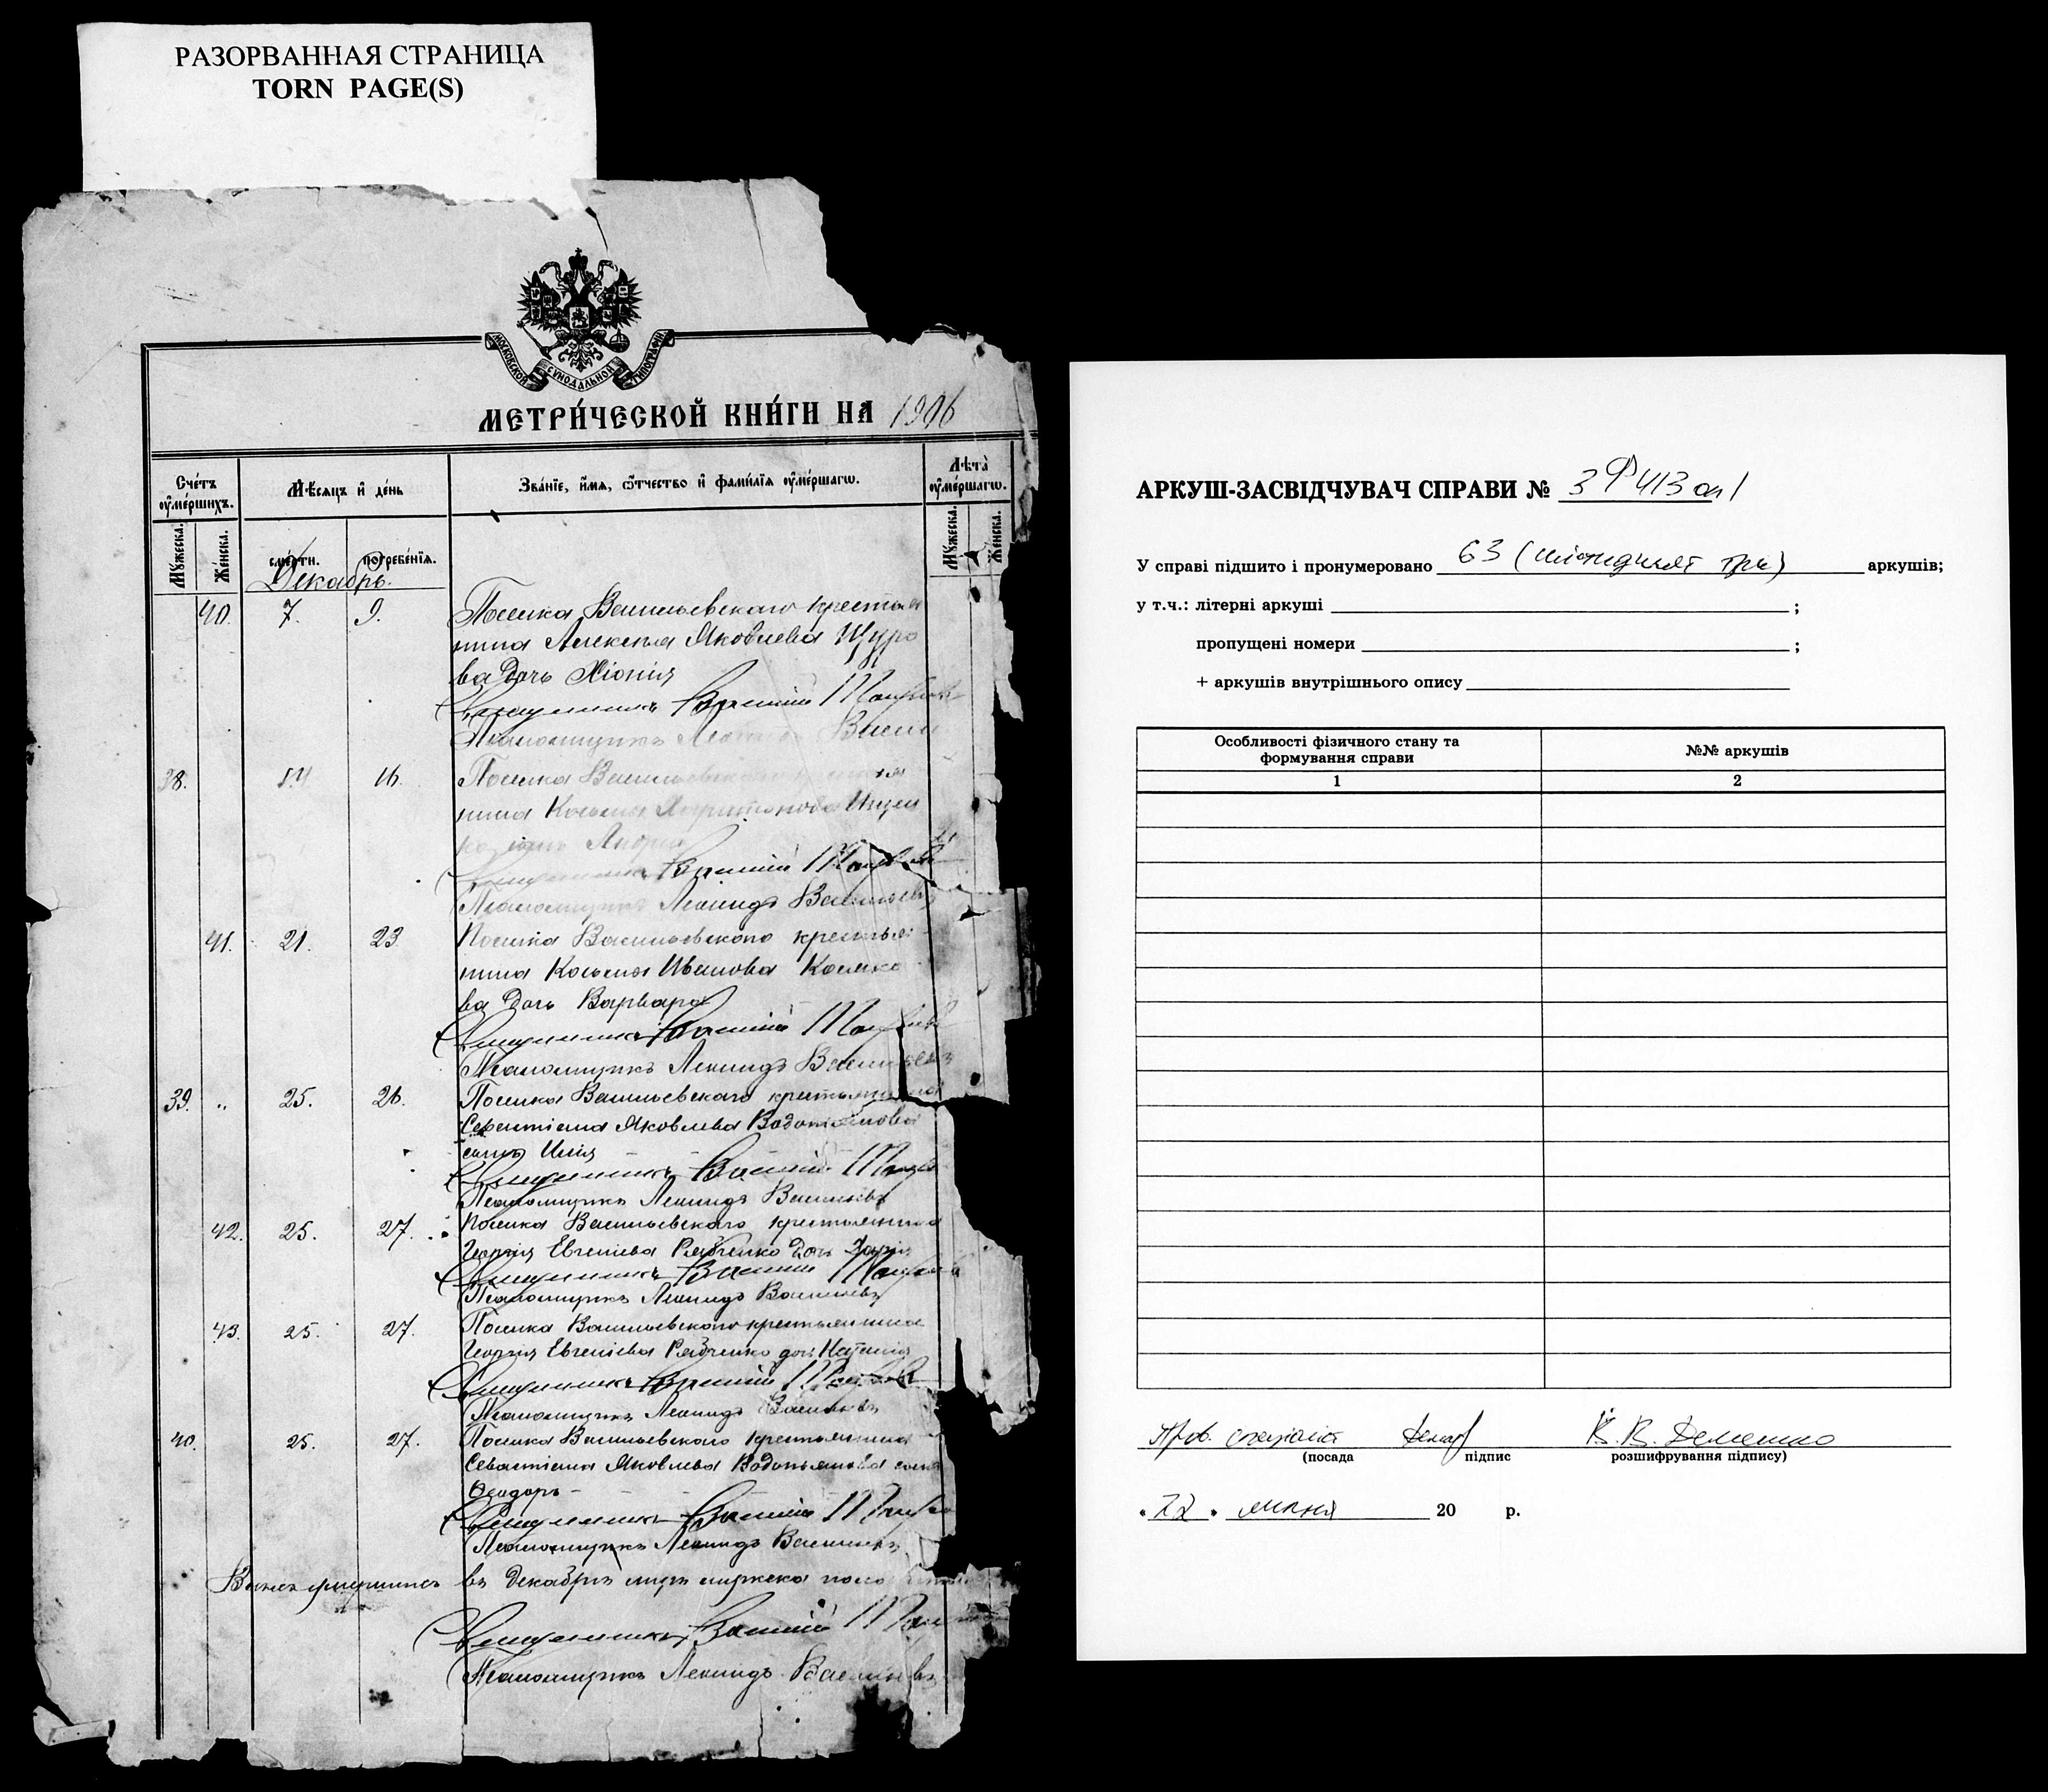 РАЗОРВАННАЯ СТРАНИЦА
TORN PAGE(S)
МОСКОВСКОЙ СѴНОДАЛЬНОЙ ТИПОГРАФІИ
МЕТРИ́ЧЕСКОЙ КНИ́ГИ НА 1906
Сче́тъ ᲂу҆ме́ршихъ.
Мѣ́сяцъ и҆ де́нь
Зва́нїе, и҆́мя, ѻ҆́тчество и҆ фами́лїя ᲂу҆ме́ршагѡ.
Лѣ́та ᲂу҆ме́ршагѡ.
Мꙋ́жеска.
Же́нска.
сме́рти.
погребе́нїя.
Мꙋ́жеска.
Же́нска.
Декабрь.
40. 7. 9. Поселка Васильевскаго крестья
нина Алексѣя Яковлева Щуро
ва дочь Хіонія
Священникъ Василій
Псаломщикъ Леонидъ Васил
38. 14 16. Поселка Васильевскаго
нина Косьмы Харитонова
сынъ Андрей
Священникъ Василій
Псаломщикъ Леонидъ Васильевъ
41. 21. 23. Поселка Васильевскаго крестья
нина Косьмы Иванова
ва дочь Варвара
Священникъ Василій
Псаломщикъ Леонидъ Васильевъ
39. „ 25. 26. Поселка Васильевскаго крестьянина
Севастіана Яковлева Водопьянова
сынъ Илія
Священникъ Василій
Псаломщикъ Леонидъ Васильевъ
42. 25. 27. Поселка Васильевскаго крестьянина
Георгія Евгеніева Рябченко дочь Марія
Священникъ Василій
Псаломщикъ Леонидъ Васильевъ
43. 25. 27. Поселка Васильевскаго крестьянина
Георгія Евгеніева Рябченко дочь Наталія
Священникъ Василій
Псаломщикъ Леонидъ Васильевъ
40. 25. 27. Поселка Васильевскаго крестьянина
Севастіана Яковлева Водопьянова сынъ
Ѳеодоръ
Священникъ Василій
Псаломщикъ Леонидъ Васильевъ
Всѣхъ умершихъ въ Декабрѣ мужеска пола
Священникъ Василій
Псаломщикъ Леонидъ Васильевъ
АРКУШ-ЗАСВІДЧУВАЧ СПРАВИ № 3 Ф 413 оп 1
У справі підшито і пронумеровано 63 (шістдесят три) аркушів;
у т.ч.: літерні аркуші ;
пропущені номери ;
+ аркушів внутрішнього опису
Особливості фізичного стану та
формування справи
№№ аркушів
1
2
Пров. спеціаліст В. В. Деменко
(посада підпис розшифрування підпису)
„ 22 „ липня 20 р.